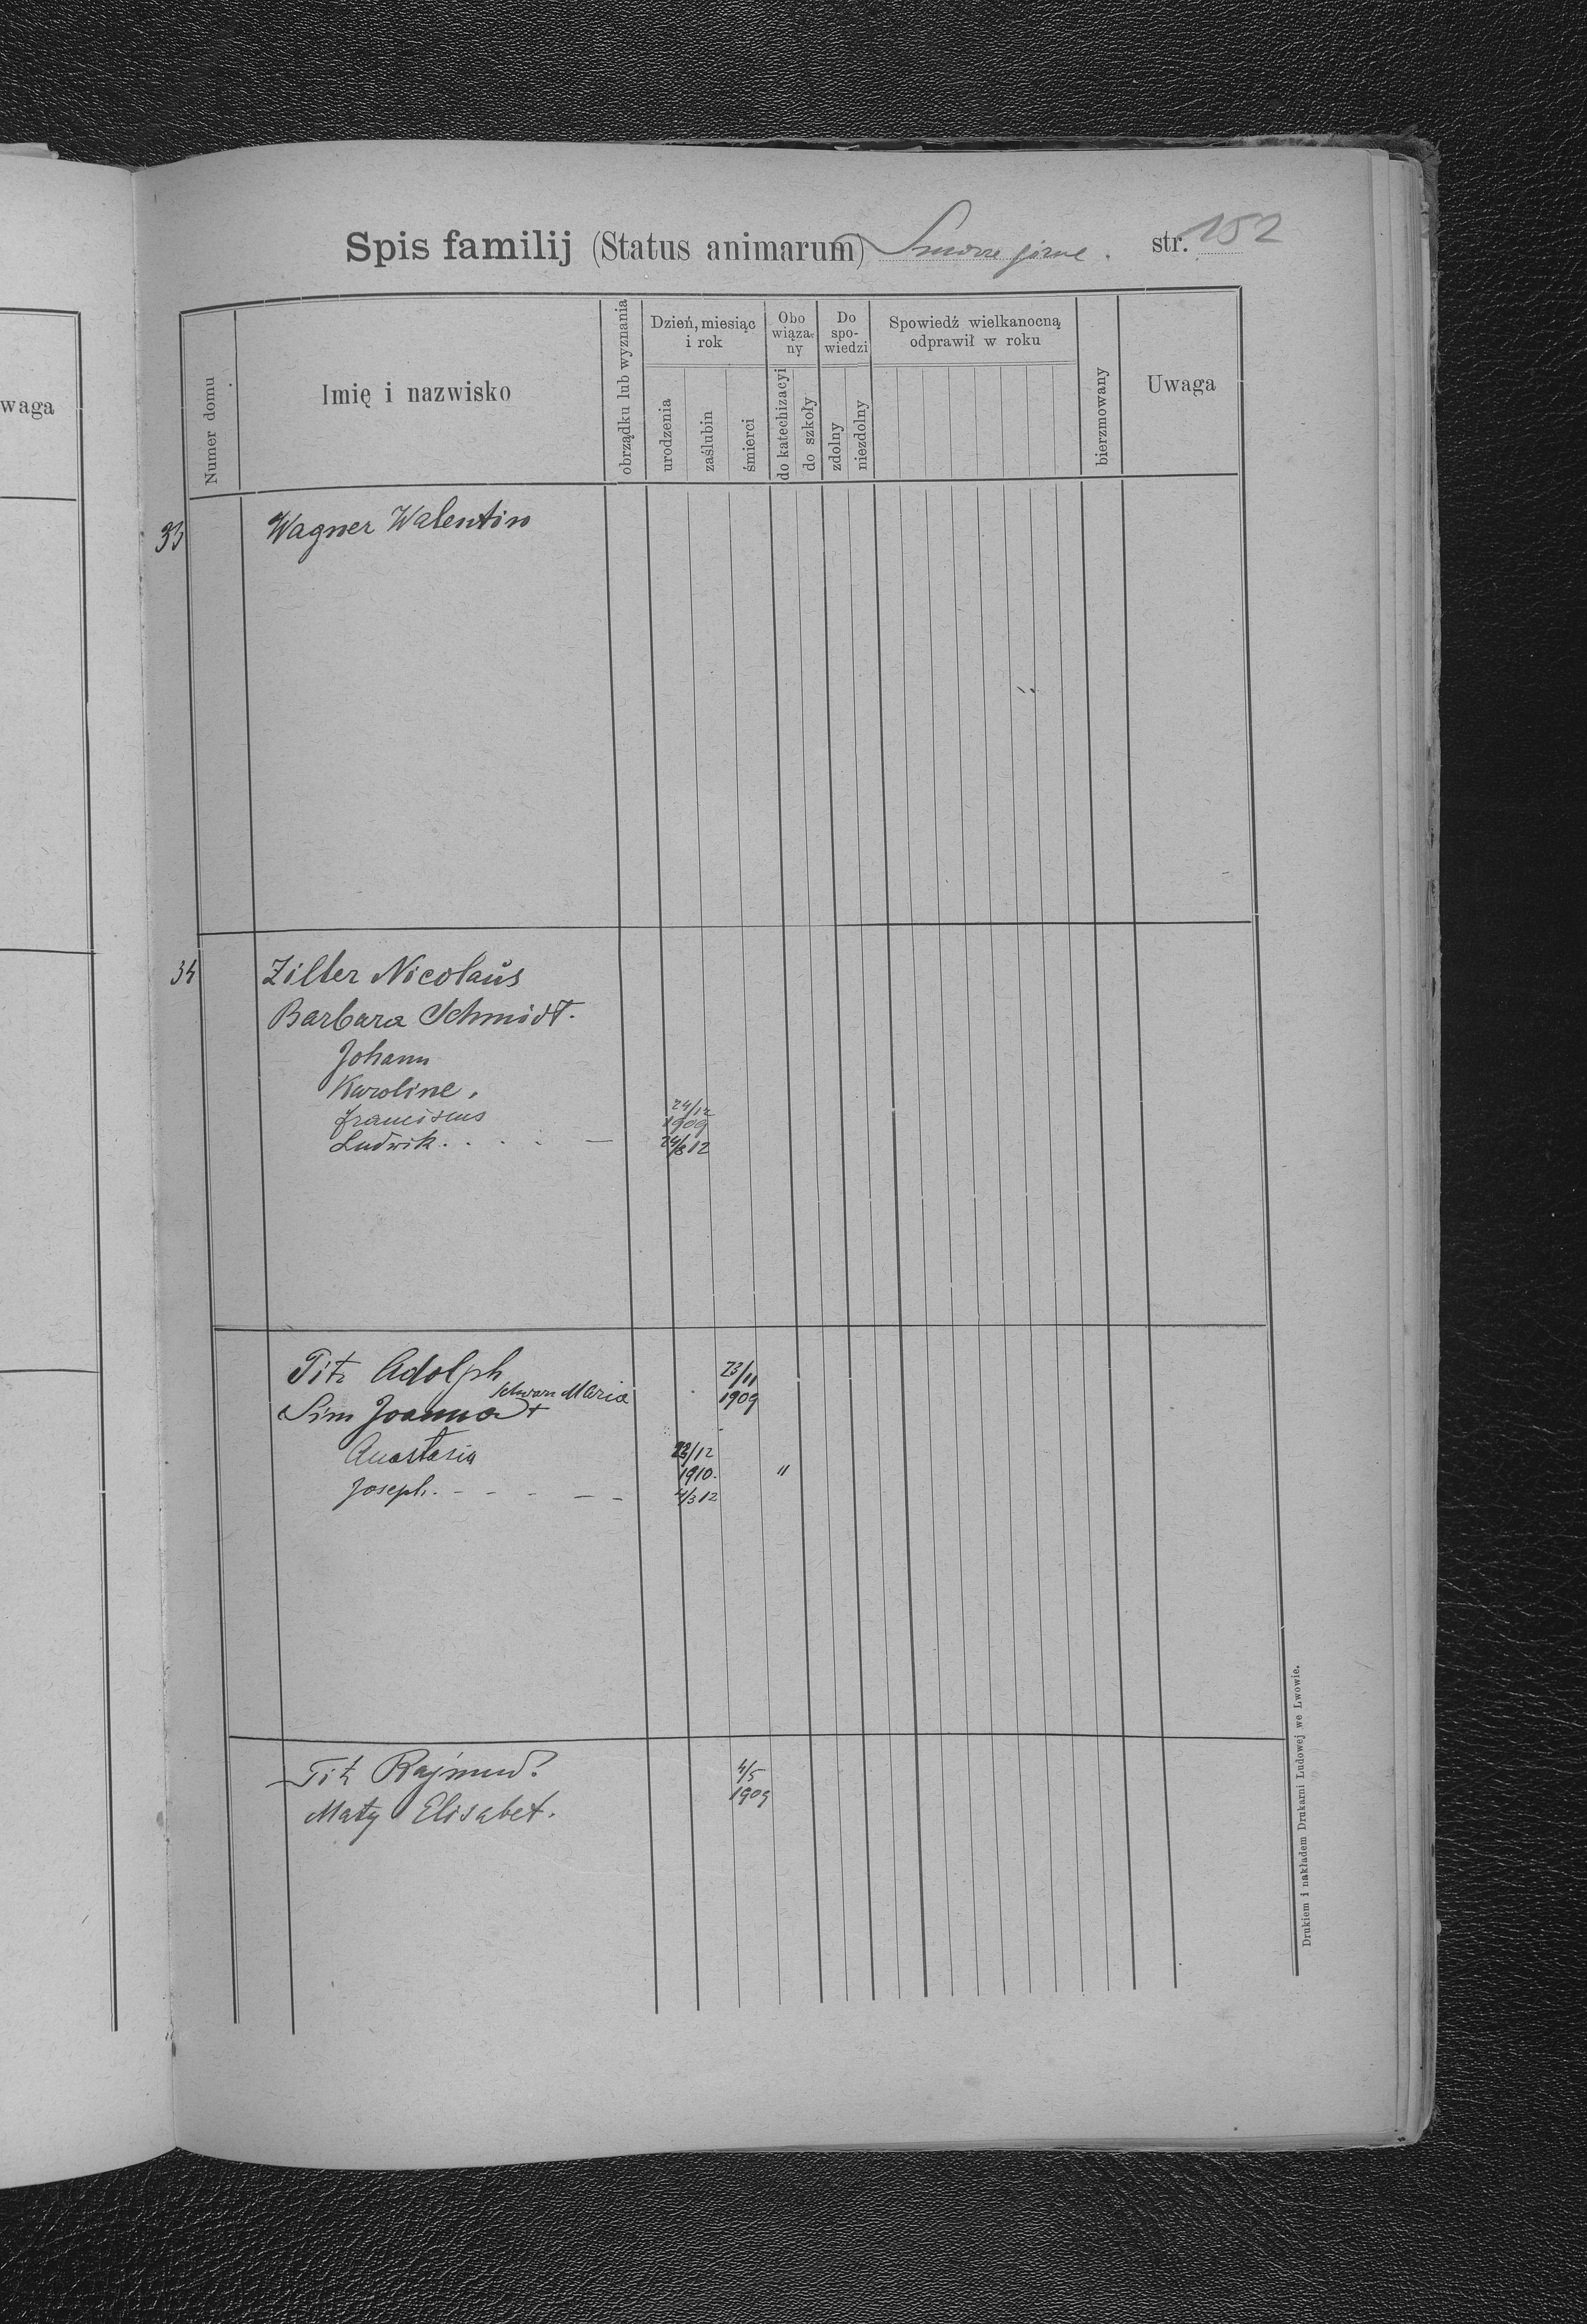 waga
Spis familij (Status animarum) Smorze górne. str. 152
Numer domu
Imię i nazwisko
obrządku lub wyznania
Dzień, miesiąc i rok
urodzenia
zaślubin
śmierci
Obo wiąza- ny
do katechizacyi
do szkoły
Do spo- wiedzi
zdolny
niezdolny
Spowiedź wielkanocną odprawił w roku
bierzmowany
Uwaga
33 Wagner Walentin
34 Ziller Nicolaus
Barbara Schmidt.
Johann
Karoline.
Franciscus 24/12 1909
Ludwik. 24/8 12
Titz Adolph 23/11 1909
Sim Joanna + Schwarz Maria
Anastasia 23/12 1910.
Joseph. 4/3 12
Titz Rajmund? 4/5 1909
Maty Elisabet.
Drukiem i nakładem Drukarni Ludowej we Lwowie.